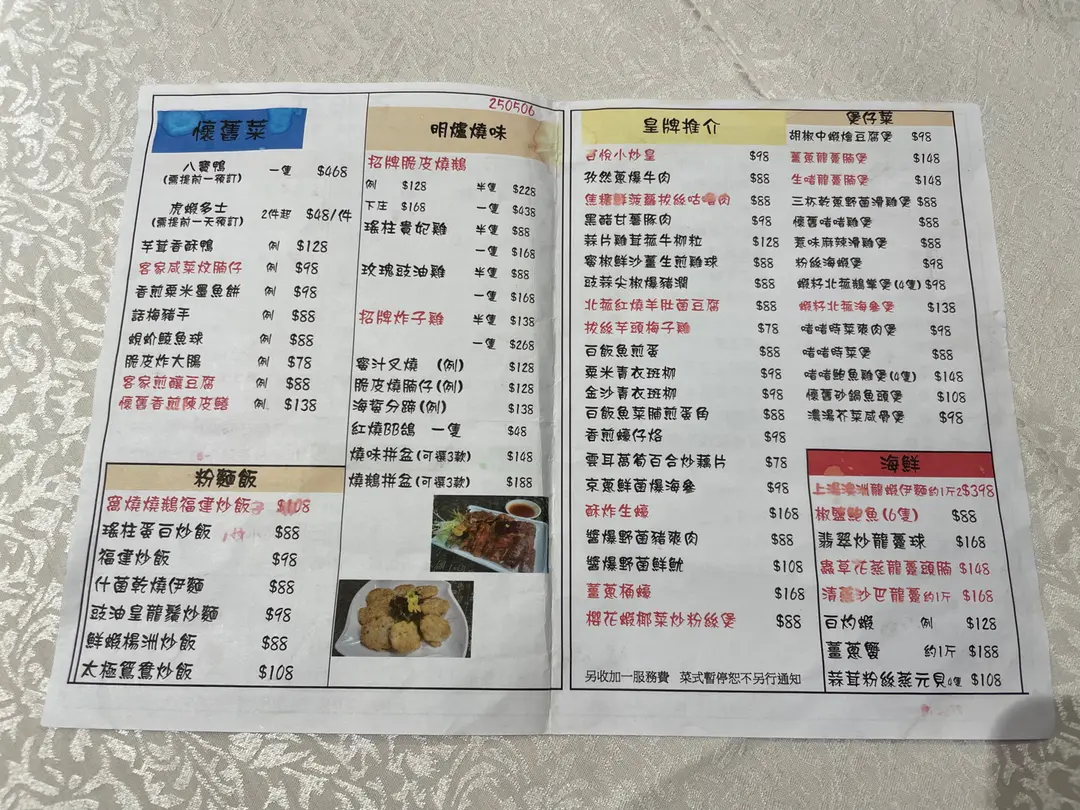 懷舊菜
八寶鴨 一隻 $468
(需提前一預訂)
虎蝦多士 2件起 $48/件
(需提前一天預訂)
芋茸香酥鴨 例 $128
客家咸菜炆腩仔 例 $98
香煎粟米墨魚餅 例 $98
話梅豬手 例 $88
蜆蚧鯪魚球 例 $88
脆皮炸大腸 例 $78
客家煎釀豆腐 例 $88
懷舊香煎陳皮鱔 例 $138
粉麵飯
窩燒燒鵝福建炒飯 $108
瑤柱蛋白炒飯 $88
福建炒飯 $98
什菌乾燒伊麵 $88
豉油皇龍鬚炒麵 $98
鮮蝦楊洲炒飯 $88
太極鴛鴦炒飯 $108
250506
明爐燒味
招牌脆皮燒鵝
例 $128 半隻 $228
下庄 $168 一隻 $438
瑤柱貴妃雞 半隻 $88
一隻 $168
玫瑰豉油雞 半隻 $88
一隻 $168
招牌炸子雞 半隻 $138
一隻 $268
蜜汁叉燒 (例) $128
脆皮燒腩仔(例) $128
海蜇分蹄(例) $138
紅燒BB鴿 一隻 $48
燒味拼盆(可選3款) $148
燒鵝拼盆(可選3款) $188
皇牌推介
君悅小炒皇 $98
孜然蔥爆牛肉 $88
焦糖鮮菠蘿拔絲咕嚕肉 $88
黑豬甘薯豚肉 $98
蒜片雞茸菰牛柳粒 $128
蜜椒鮮沙薑生煎雞球 $88
豉蒜尖椒爆豬潤 $88
北菰紅燒羊肚菌豆腐 $88
拔絲芋頭梅子雞 $78
百飯魚煎蛋 $88
粟米青衣班柳 $98
金沙青衣班柳 $98
百飯魚菜脯煎蛋角 $88
香煎蠔仔烙 $98
雲耳萵筍百合炒藕片 $78
京蔥鮮菌爆海參 $98
酥炸生蠔 $168
醬爆野菌豬爽肉 $88
醬爆野菌鮮魷 $108
薑蔥桶蠔 $168
櫻花蝦椰菜炒粉絲煲 $88
另收加一服務費 菜式暫停恕不另行通知
煲仔菜
胡椒中蝦燴豆腐煲 $98
薑蔥龍躉腩煲 $148
生啫龍躉腩煲 $148
三杯乾蔥野菌滑雞煲 $98
懷舊啫啫雞煲 $88
惹味麻辣滑雞煲 $88
粉絲海蝦煲 $98
蝦籽北菰鵝掌煲(4隻) $98
蝦籽北菰海參煲 $138
啫啫時菜爽肉煲 $98
啫啫時菜煲 $88
啫啫鮑魚雞煲(4隻) $148
懷舊砂鍋魚頭煲 $108
濃湯芥菜咸骨煲 $98
海鮮
上湯澳洲龍蝦伊麵約1斤2$398
椒鹽鮑魚(6隻) $88
翡翠炒龍躉球 $168
蟲草花蒸龍躉頭腩 $148
清蒸沙巴龍躉約1斤 $168
百灼蝦 例 $128
薑蔥蟹 約1斤 $188
蒜茸粉絲蒸元貝4隻 $108